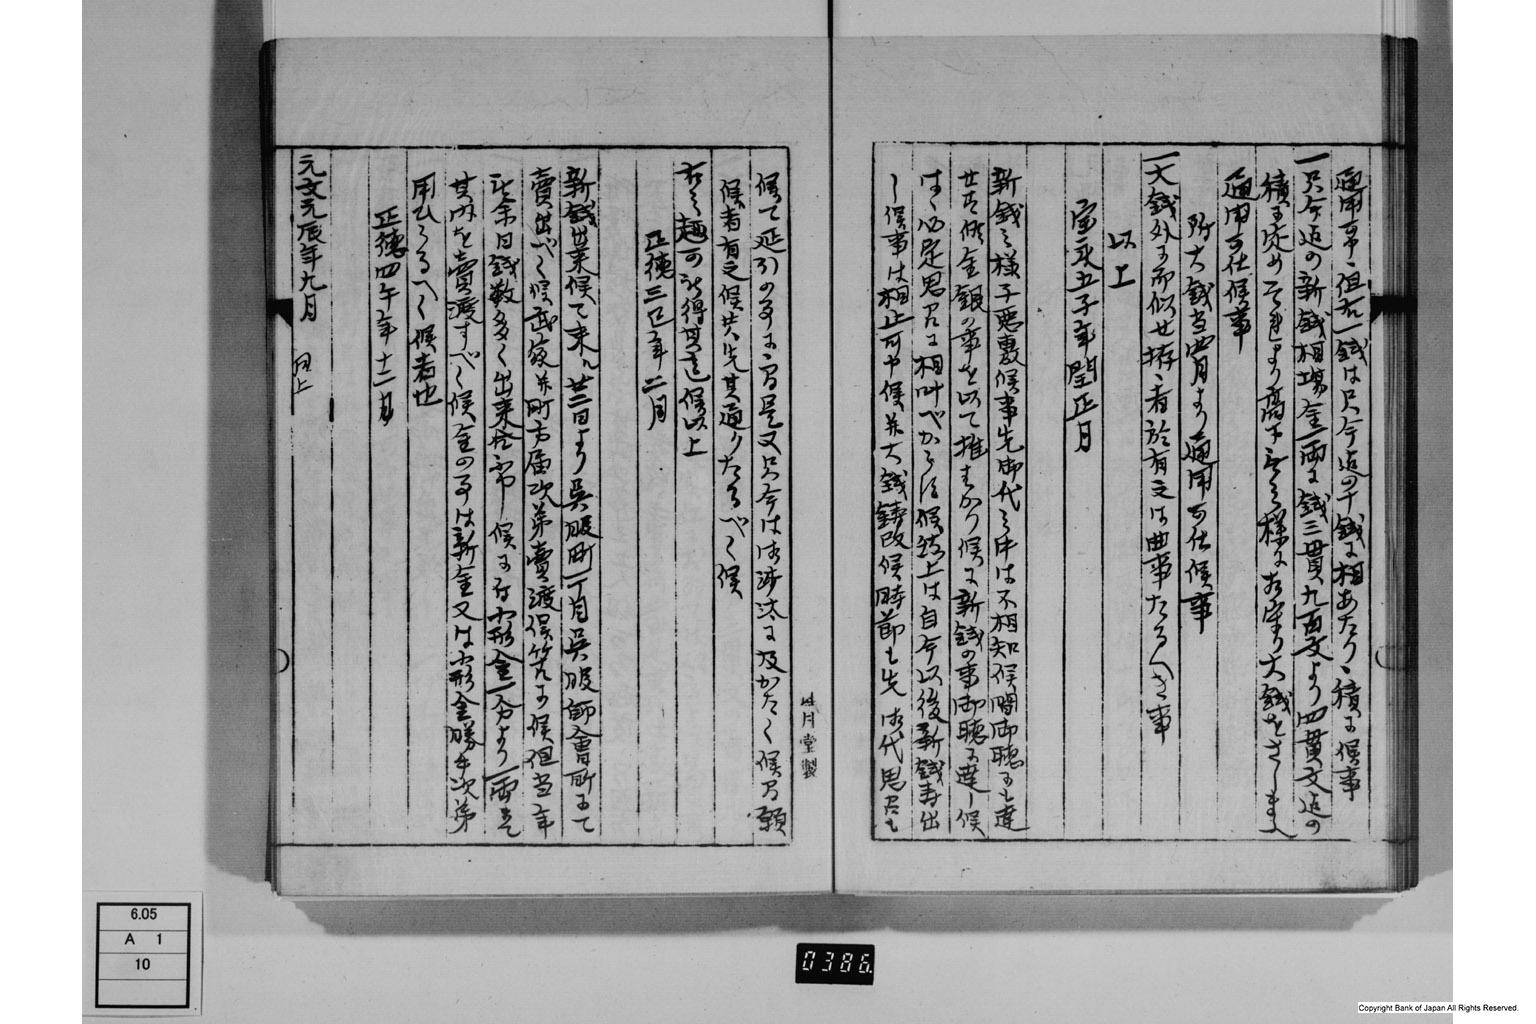 通用事但右一銭は只今迄の十銭に相あたり積に候事
一只今迄の新銭相場金一両に銭三貫九百文より四貫文迄の
積に定め それより高下無之様に相守り大銭をさしまへ
通用可仕候事
附大銭当四月より通用可仕候事
一大銭外に而似せ拵者於有之は曲事たるへき事
以上
宝永五子年閏正月
新銭之様子悪敷候事先御代之中は不相知候間御聴にも達
金銀の事を以て推はかり候に新銭の事御聴に達し候
はゝ必定思召に相叶べからす候 上は自今以後新銭寿出
し候事は相止可申候并大銭鋳改候時節も先御代思召も
候て延引の事に 又只今は御沙汰に及かたく候間願
候者有之候共先其通りたるべく候
右之趣可被得其意候以上
正徳三巳年二月
新銭出来候て来ル廿二日より呉服町一丁目呉服師会所にて
賣出べく候武家并町方届次第賣渡候筈に候但当年
は余日銭数多く出来 候に付小形金一分より一両迄
其内を賣渡すべく候金の事は新金又は小形金勝手次第
用ひらるへく候者也
正徳四午年十二月
元文元辰年九月
同上
堂製
6.05
A 1
10
0386
Copyright Bank of Japan All Rights Reserved.